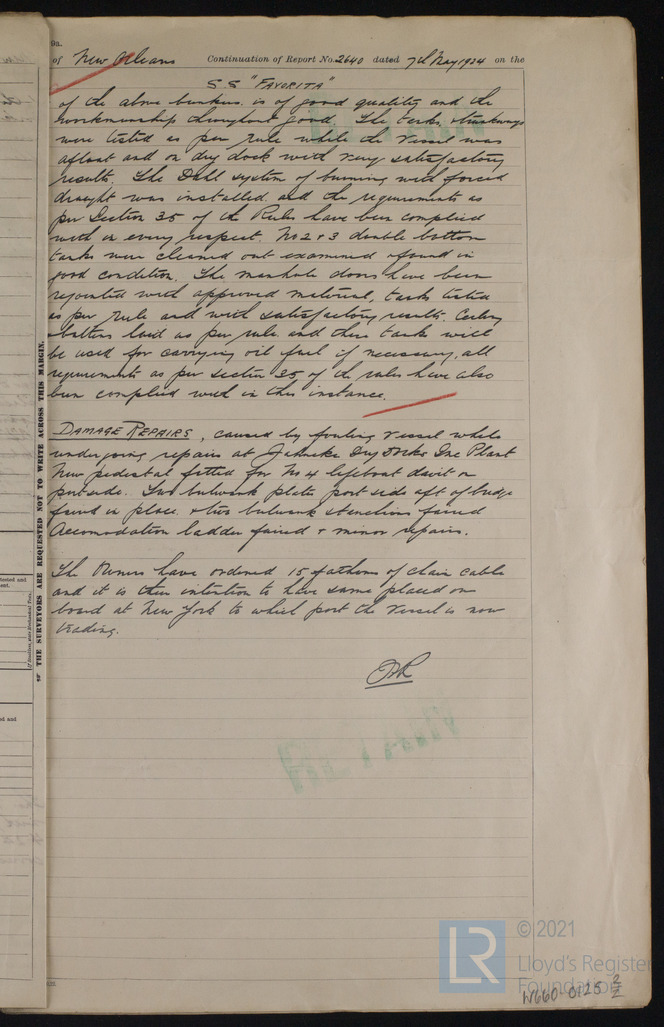 9a.
of New Orleans Continuation of Report No. 2640 dated 7th May 1924 on the
S.S "FAVORITA"
of the above bunkers is of good quality and the
workmanship throughout good. The tanks & trunkways
were tested as per rule while the vessel was
afloat and on dry dock with very satisfactory
results. The Dahl system of burning with forced
draught was installed and the requirements as
per Section 35 of the Rules have been complied
with in every respect. No 2 & 3 double bottom
tanks were cleaned out examined & found in
good condition. The manhole doors have been
rejointed with approved material, tanks tested
as per rule and with satisfactory results. Ceiling
& battens laid as per rule and these tanks will
be used for carrying oil fuel if necessary, all
requirements as per section 35 of the rules have also
been complied with in this instance.
DAMAGE REPAIRS, caused by fouling vessel while
undergoing repairs at Jahncke Dry Docks One Plant
New pedestal fitted for No 4 lifeboat davit on
portside. Two bulwark plates port side aft of bridge
faired in place & two bulwark stanchions faired
Accomodation ladder faired & minor repairs.
The Owners have ordered 15 fathoms of chain cable
and it is their intention to have same placed on
board at New York to which port the vessel is now
trading.
RETAIN
THE SURVEYORS ARE REQUESTED NOT TO WRITE ACROSS THIS MARGIN.
LR
© 2021
Lloyd's Register
Foundation
W660-0125 2/2